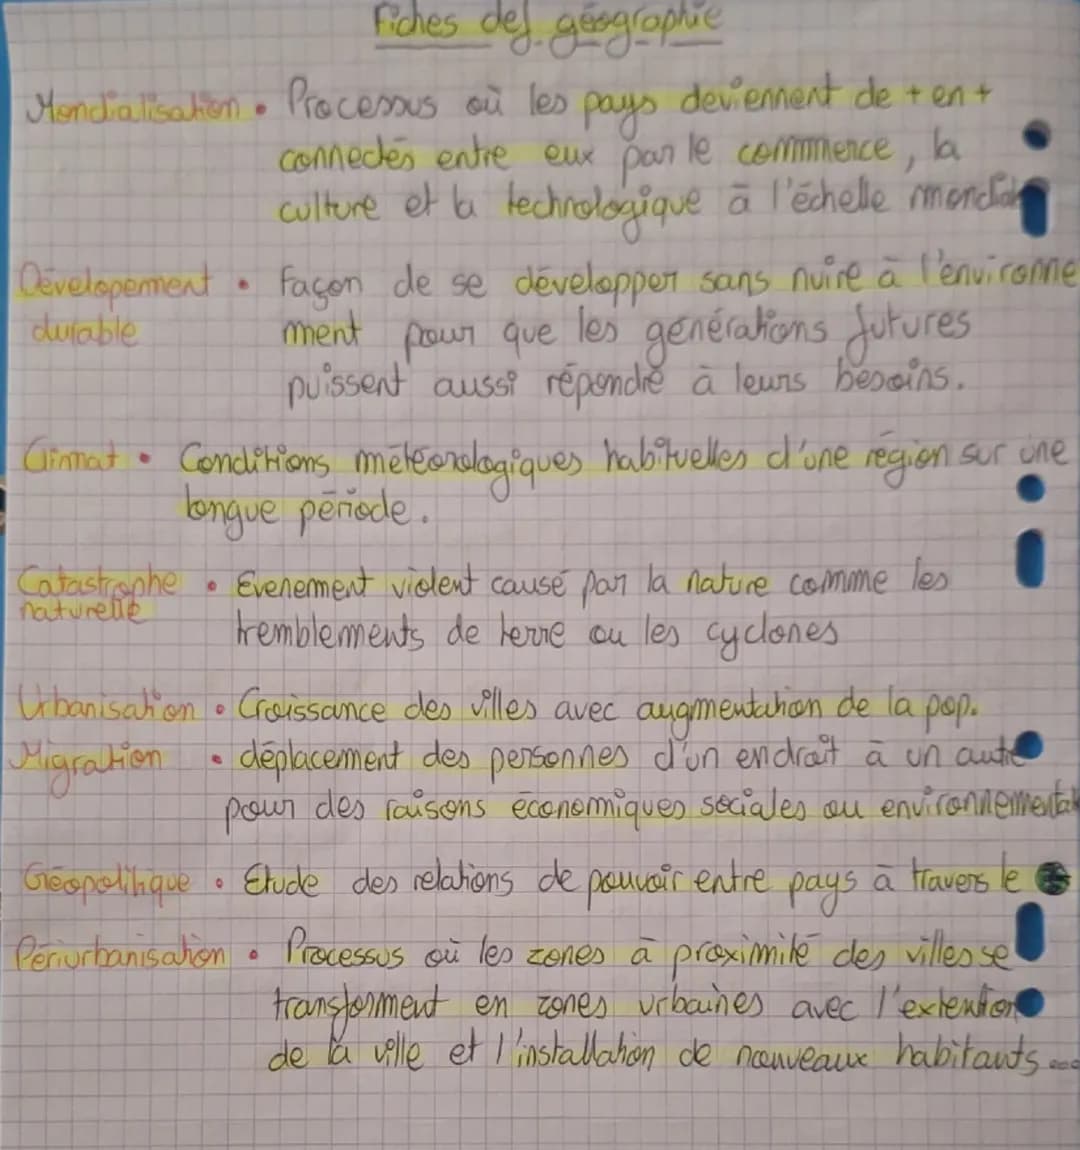 Fiches def géographie
Mondialisation • Processus où les pays deviennent de + en +
connectés entre eux par le commmerce, la
culture et la technologique à l'échelle
Dévelopement • Façon de se développer sans nuire à l'environne
durable ment pour que les générations futures
puissent aussi répondre à leurs besoins.
Climat • Conditions météorologiques habituelles d'une région sur une
longue période.
Catastrophe • Evenement violent causé par la nature comme les
naturelle tremblements de terre ou les cyclones
Urbanisation • Croissance des villes avec augmentation de la pop.
Migration • déplacement des personnes d'un endroit à un autre
pour des raisons économiques sociales ou environnemental
Géopolitique • Etude des relations de pouvoir entre pays à travers le
Périurbanisation • Processus où les zones à proximité des villes se
transforment en zones urbaines avec l'extention
de la ville et l'installation de nouveaux habitants...